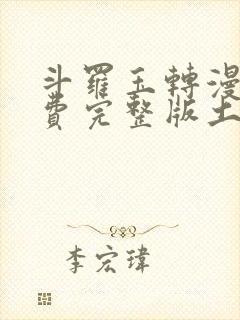 斗羅玉轉漫
費完整版土
李宏瑋